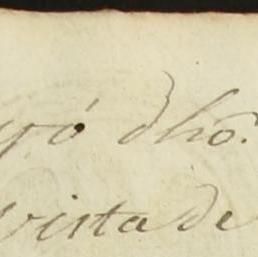 yó dho.
vista de